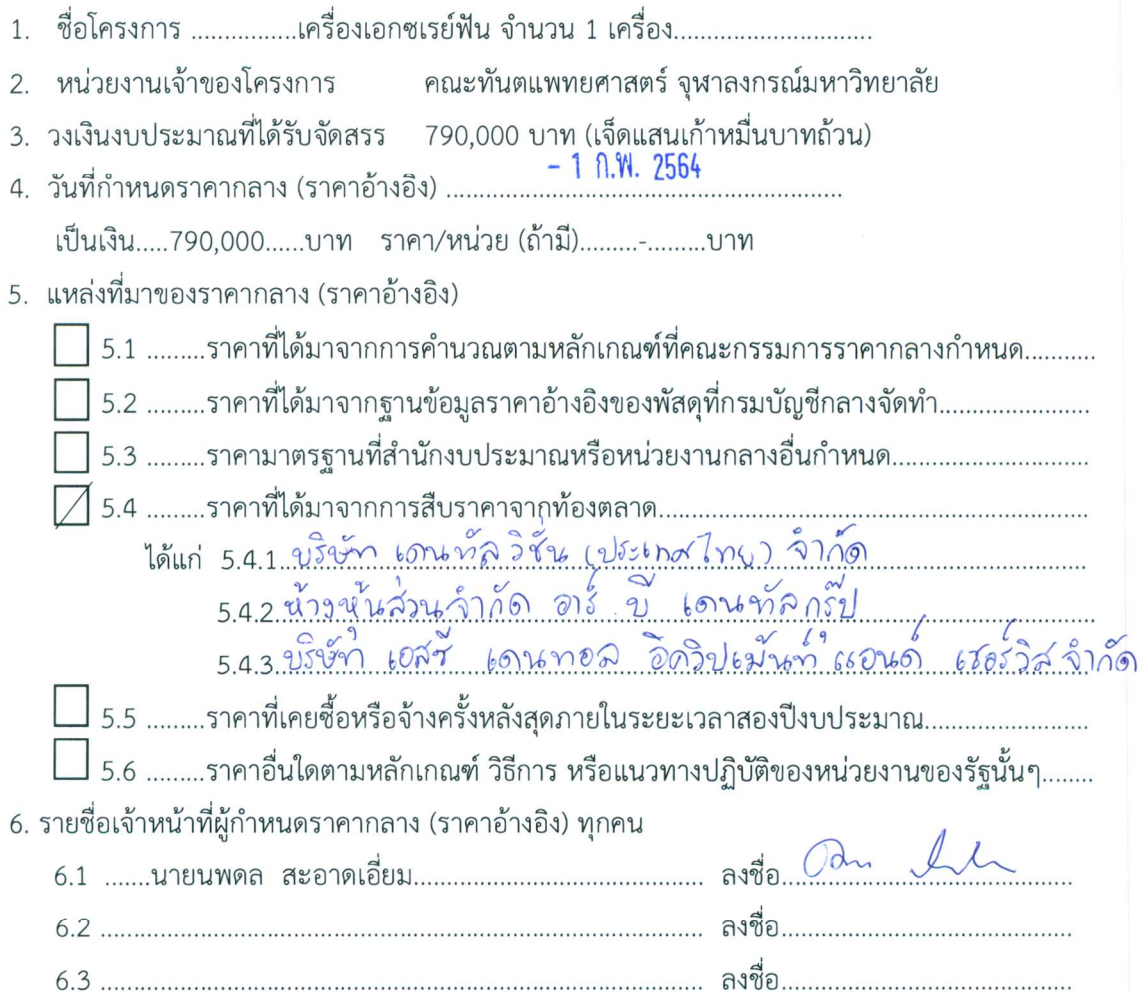 1. ชื่อโครงการ ................เครื่องเอกซเรย์ฟัน จำนวน 1 เครื่อง..............................
2. หน่วยงานเจ้าของโครงการ คณะทันตแพทยศาสตร์ จุฬาลงกรณ์มหาวิทยาลัย
3. วงเงินงบประมาณที่ได้รับจัดสรร 790,000 บาท (เจ็ดแสนเก้าหมื่นบาทถ้วน)
- 1 ก.พ. 2564
4. วันที่กำหนดราคากลาง (ราคาอ้างอิง) ............................................................
เป็นเงิน.....790,000......บาท ราคา/หน่วย (ถ้ามี).........-.........บาท
5. แหล่งที่มาของราคากลาง (ราคาอ้างอิง)
5.1 .........ราคาที่ได้มาจากการคำนวณตามหลักเกณฑ์ที่คณะกรรมการราคากลางกำหนด...........
5.2 .........ราคาที่ได้มาจากฐานข้อมูลราคาอ้างอิงของพัสดุที่กรมบัญชีกลางจัดทำ.......................
5.3 .........ราคามาตรฐานที่สำนักงบประมาณหรือหน่วยงานกลางอื่นกำหนด..............................
5.4 .........ราคาที่ได้มาจากการสืบราคาจากท้องตลาด.................................................................
ได้แก่ 5.4.1 บริษัท เดนทัล วิชั่น (ประเทศไทย) จำกัด
5.4.2 ห้างหุ้นส่วนจำกัด อาร์ บี เดนทัลกรุ๊ป
5.4.3 บริษัท เอสซี เดนทอล อีควิปเม้นท์ แอนด์ เซอร์วิส จำกัด
5.5 .........ราคาที่เคยซื้อหรือจ้างครั้งหลังสุดภายในระยะเวลาสองปีงบประมาณ.........................
5.6 .........ราคาอื่นใดตามหลักเกณฑ์ วิธีการ หรือแนวทางปฏิบัติของหน่วยงานของรัฐนั้นๆ........
6. รายชื่อเจ้าหน้าที่ผู้กำหนดราคากลาง (ราคาอ้างอิง) ทุกคน
6.1 .......นายนพดล สะอาดเอี่ยม............................................ ลงชื่อ............................................
6.2 ............................................................................................ ลงชื่อ............................................
6.3 ............................................................................................ ลงชื่อ............................................